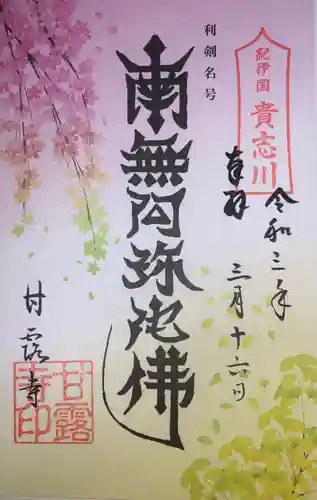 紀伊国
貴志川
奉拝
令和三年
三月十六日
利剣名号
南無阿弥陀佛
甘露寺
甘露
寺印